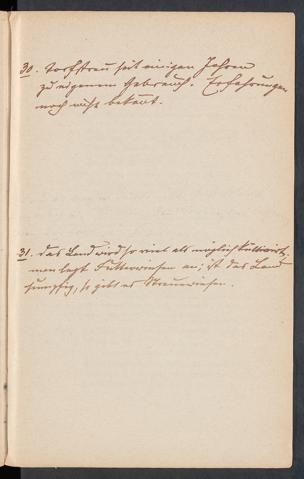 30. Torfstreu seit einigen Jahren
zu eigenem Gebrauch. Erfahrungen
noch nicht bekannt.
31. Das Land wird so viel als möglich kultiviert,
man legt Futterwiesen an; ist das Land
sumpfig, so gibt es Streuewiesen.